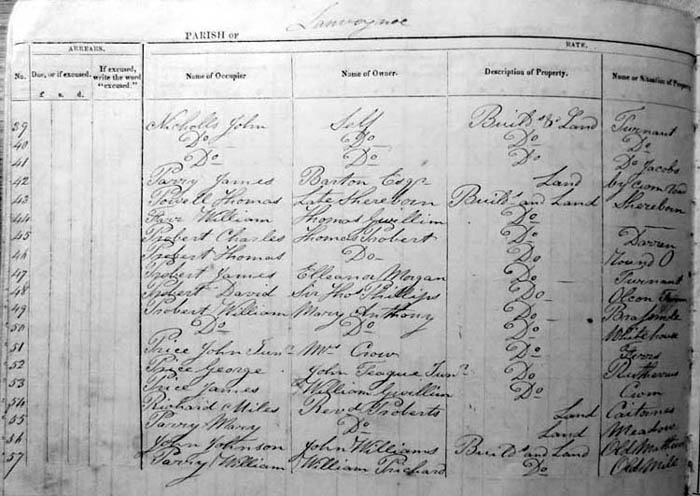 PARISH OF Lanveynoe
ARREARS. RATE.
No. Due, or if excused. If excused, write the word "excused." Name of Occupier Name of Owner. Description of Property. Name or Situation of Property
£ s. d.
39 Nicholls John Self Build & Land Turnant
40 Do Do Do Do
41 Do Do Do Do Jacobs
42 Parry James Barton Esqr Land by com
43 Powell Thomas Late Shereborn Builds and Land Shereborn
44 William Thomas Gwillim Do
45 Probert Charles Thomas Probert Do Darren
46 Probert Thomas Do Do Round O
47 Probert James Elleanor Morgan Do Turnant
48 Probert David Sir Thos Phillips Do Olcon
49 Probert William Mary Anthony Do
50 Do Do Do Whitehouse
51 Price John Junr Mrs Crow Do
52 Price George John Teague Junr Do
53 Price James William Gwillim Do Cwm
54 Richard Miles Revd Proberts Land
55 Parry Mary Do Land Meadow
56 John Johnson John Williams Builds and Land Old
57 Parry William William Prichard Do Old Mill